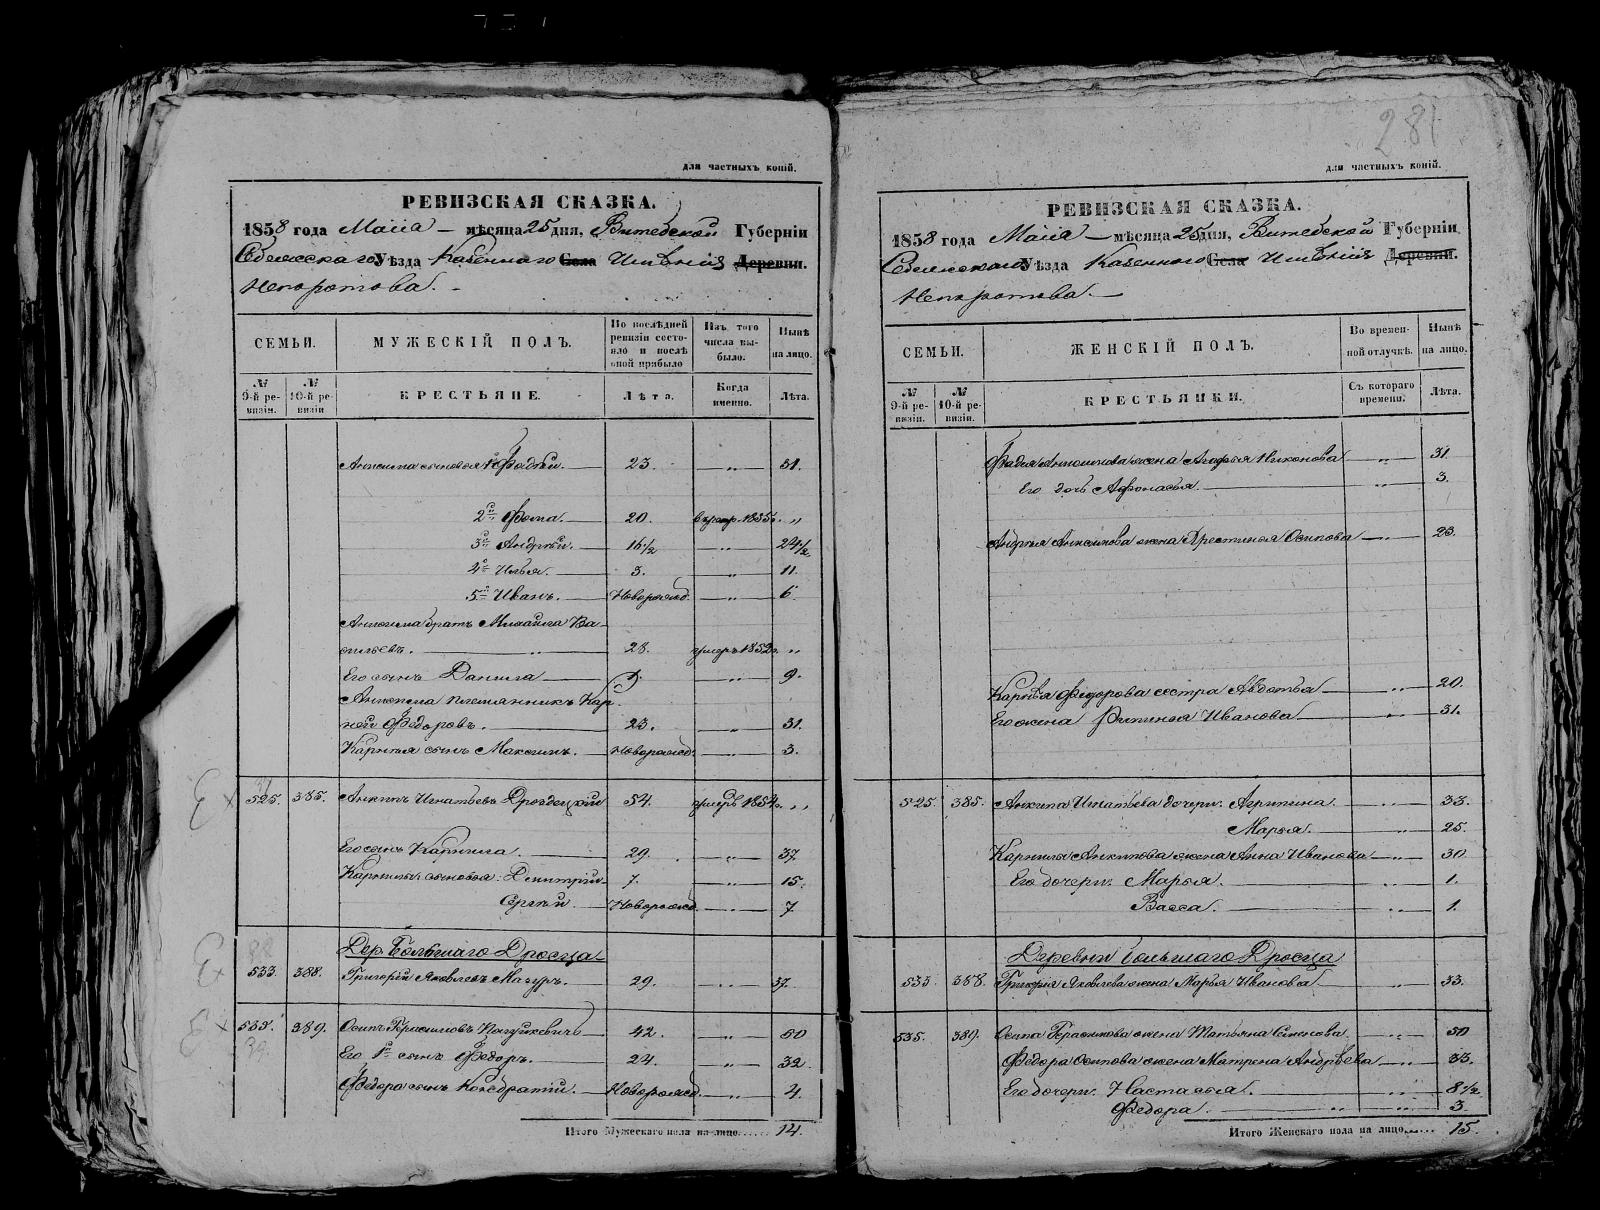 281
для частныхъ копій.
РЕВИЗСКАЯ СКАЗКА.
1858 года Маія — мѣсяца 25 дня, Витебской Губерніи
Себежскаго Уѣзда Казеннаго Села Имѣнія Деревни.
Непоротова. —
СЕМЬИ.
МУЖЕСКІЙ ПОЛЪ.
По послѣдней ревизіи состояло и послѣ оной прибыло
Изъ того числа выбыло.
Нынѣ на лицо.
№ 9-й ревизіи.
№ 10-й ревизіи
КРЕСТЬЯНЕ.
Лѣта.
Когда именно.
Лѣта.
Анисима сыновья 1й Фадѣй. — 23. — „ — 31.
2й Фома. — 20. 1855. „
3й Андрѣй. — 16½ — „ — 24½
4й Илья. — 3. — „ — 11.
5й Иванъ. — Новорожд. — „ — 6.
Анисима братъ Михаила Ва-
сильевъ. — „ — 28. умеръ 1852г. „
Его сынъ Данила — 1. — „ — 9.
Анисима племянникъ Кар-
ней Федоровъ. — 23. — „ — 31.
Карнѣя сынъ Максимъ. — Новорожд. — „ — 3.
525. 385. Анкипъ Игнатьевъ Дроздецкій 54. умеръ 1854г. „
Его сынъ Карнила. — 29. — „ — 37.
Карнилы сыновья: Дмитрій — 7. — „ — 15.
Сергѣй. — Новорожд. — „ — 7.
Дер. Большаго Дросца
533. 388. Григорій Яковлевъ Мазуръ. — 29. — „ — 37.
535. 389. Осипъ Герасимовъ — 42. — „ — 50
Его 1й сынъ Федоръ. — 24. — „ — 32.
Федора сынъ Кондратій. — Новорожд. — „ — 4.
Итого Мужескаго пола на лицо...... 14.
для частныхъ копій.
РЕВИЗСКАЯ СКАЗКА.
1858 года Маія — мѣсяца 25 дня, Витебской Губерніи
Себежскаго Уѣзда Казеннаго Села Имѣнія Деревни.
Непоротова. —
СЕМЬИ.
ЖЕНСКІЙ ПОЛЪ.
Во временной отлучкѣ.
Нынѣ на лицо.
№ 9-й ревизіи.
№ 10-й ревизіи.
КРЕСТЬЯНКИ.
Съ котораго времени.
Лѣта.
Фадея Анисимова жена Агафья Никонова — „ — 31.
Его дочь Афонасья. — „ — 3.
Андрея Анисимова жена Крестинья Осипова — „ — 23.
Карнѣя Федорова сестра Авдотья — „ — 20.
Его жена Иванова — „ — 31.
525. 385. Анкипа Игнатьева дочери. Агрипина. — „ — 33.
Марья. — „ — 25.
Карнилы Анкипова жена Анна Иванова — „ — 30
Его дочери: Марья. — „ — 1.
Васса. — „ — 1.
Деревни Большаго Дросца
533. 388. Григорія Яковлева жена Марья Иванова — „ — 33.
535. 389. Осипа Герасимова жена Татьяна Семенова. — „ — 50
Федора Осипова жена Матрена Андрѣева — „ — 33.
Его дочери: Настасья. — „ — 8½.
Федора. — „ — „ — 3.
Итого Женскаго пола на лицо...... 15.